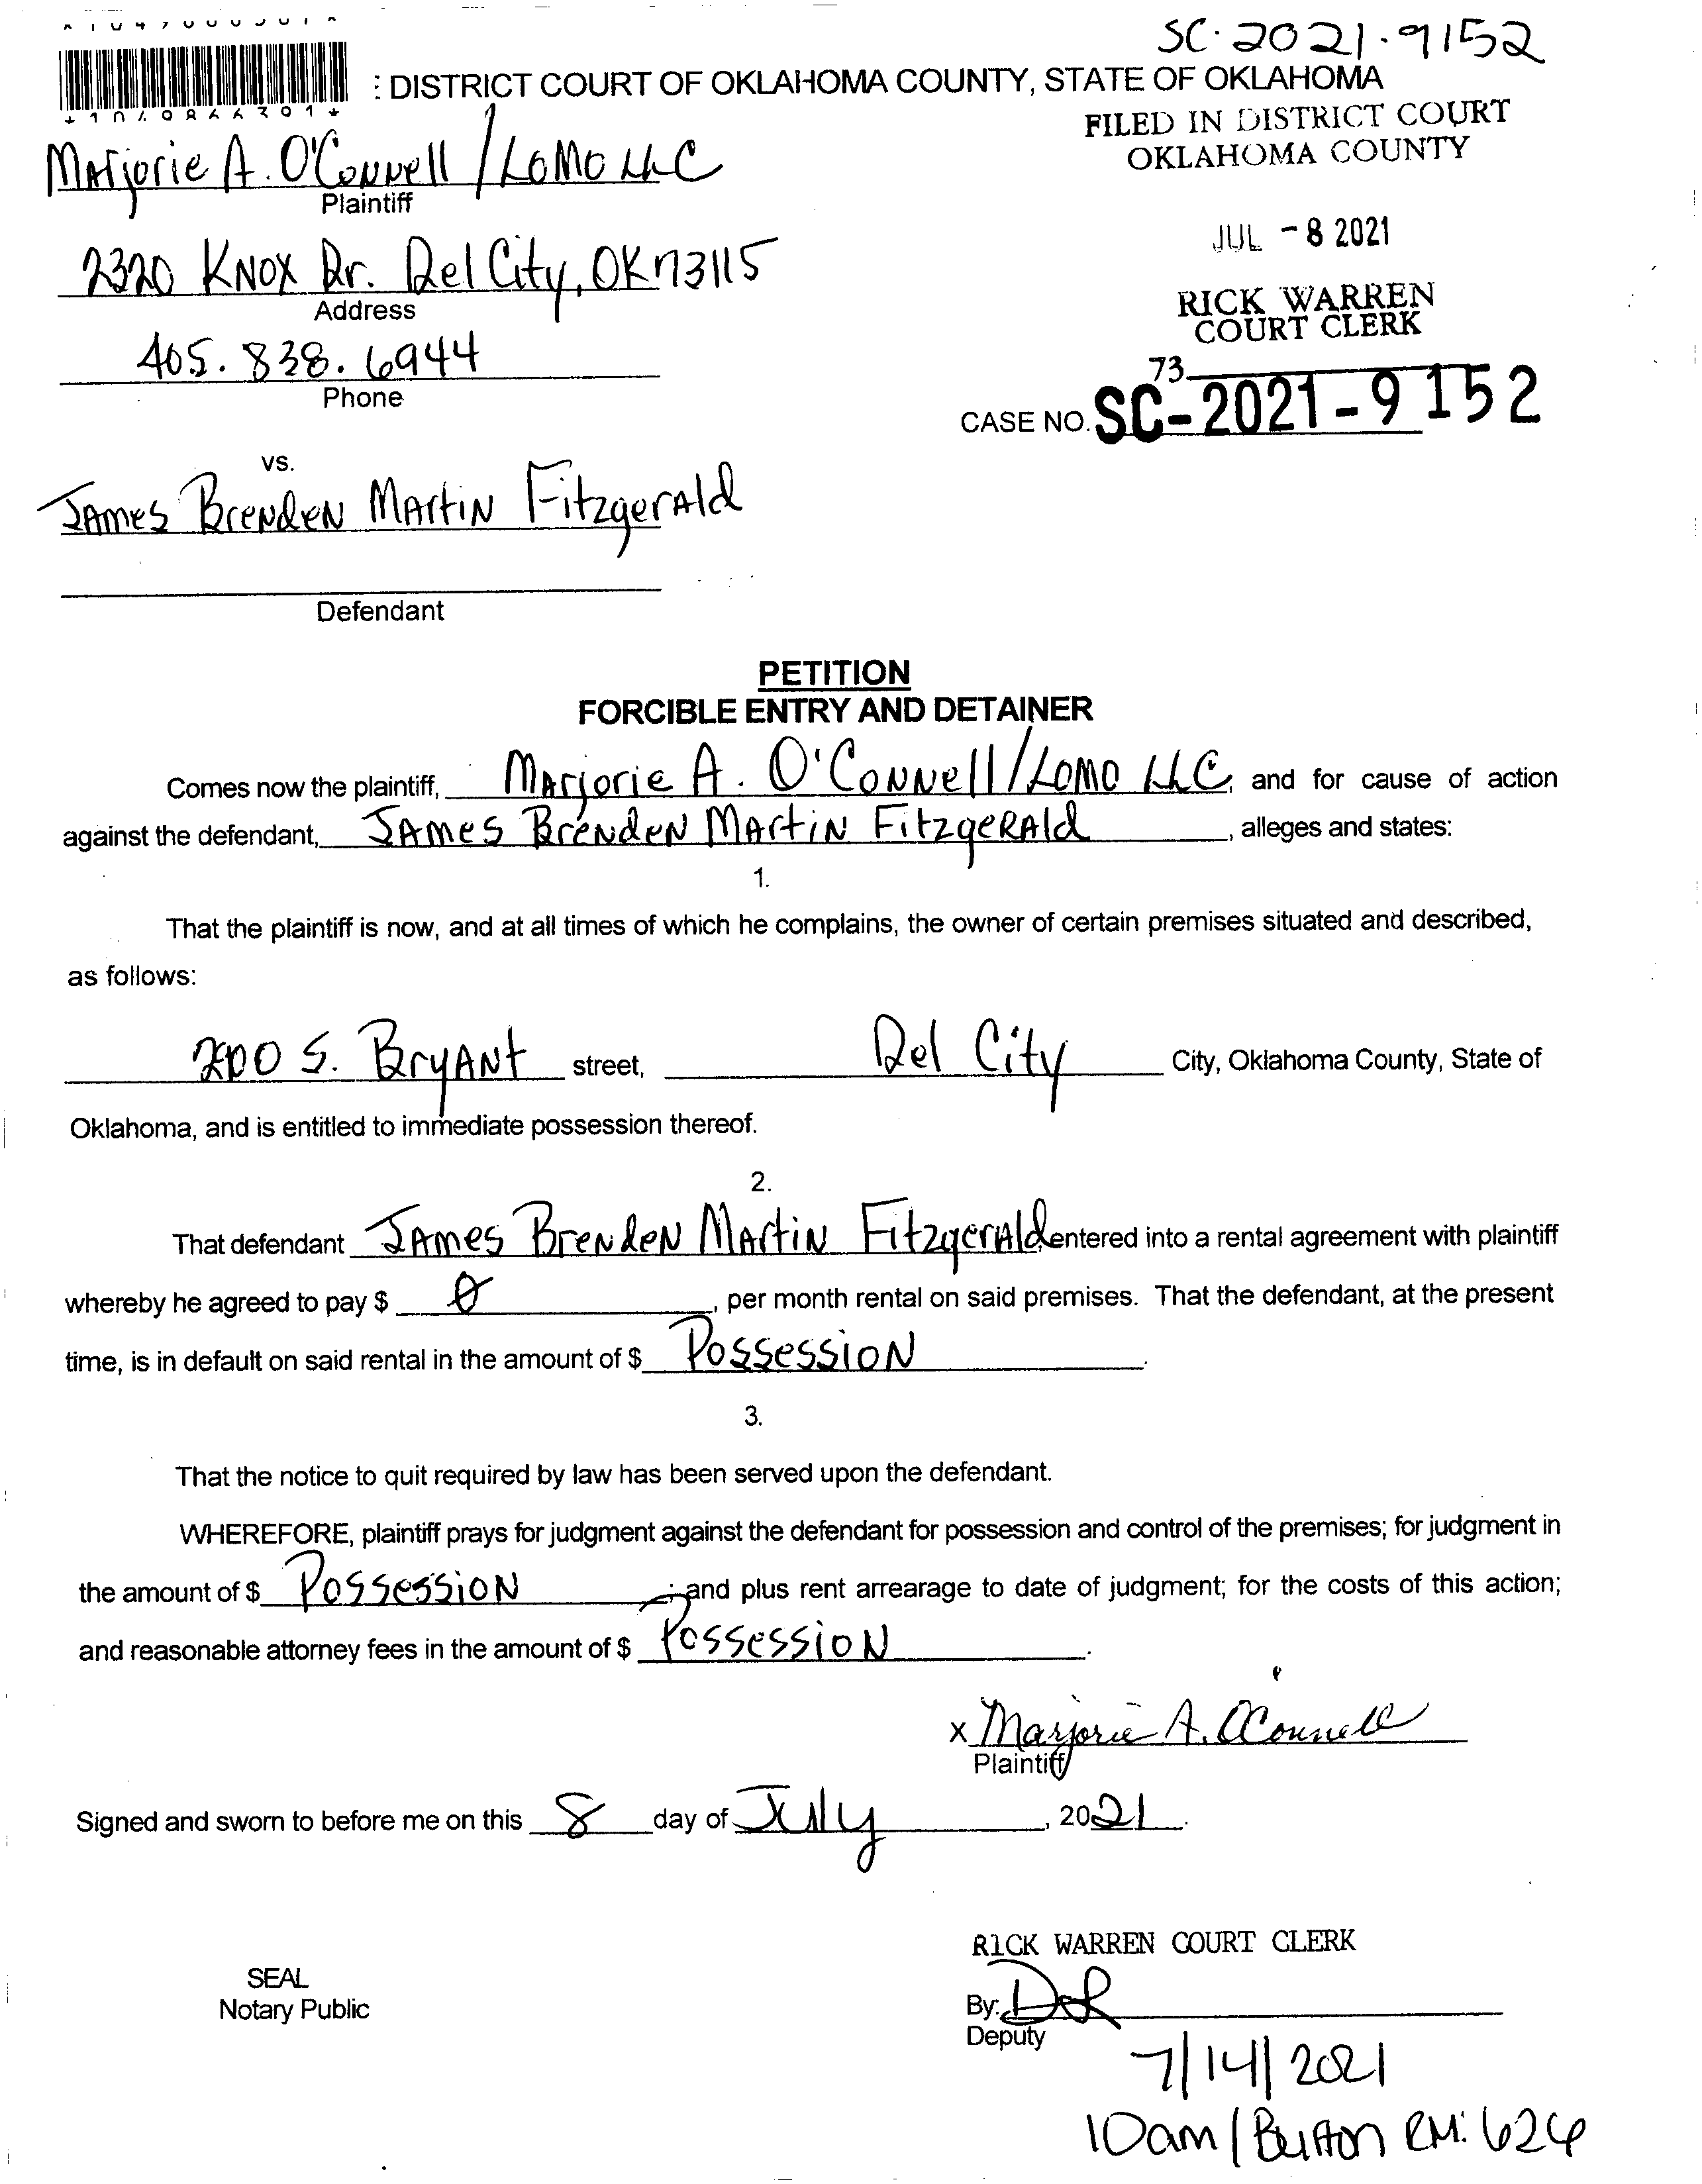 SC-2021-9152
: DISTRICT COURT OF OKLAHOMA COUNTY, STATE OF OKLAHOMA
FILED IN DISTRICT COURT
OKLAHOMA COUNTY
Marjorie A. O'Connell / LOMO LLC
Plaintiff
JUL - 8 2021
2320 Knox Dr. Del City, OK 73115
Address
RICK WARREN
COURT CLERK
405. 838. 6944
Phone
73
CASE NO. SC-2021-9152
vs.
James Brenden Martin Fitzgerald
Defendant
PETITION
FORCIBLE ENTRY AND DETAINER
Comes now the plaintiff, Marjorie A. O'Connell/LOMO LLC, and for cause of action
against the defendant, James Brenden Martin Fitzgerald, alleges and states:
1.
That the plaintiff is now, and at all times of which he complains, the owner of certain premises situated and described,
as follows:
S. Bryant street, Del City City, Oklahoma County, State of
Oklahoma, and is entitled to immediate possession thereof.
2.
That defendant James Brenden Martin Fitzgerald entered into a rental agreement with plaintiff
whereby he agreed to pay $ 0, per month rental on said premises. That the defendant, at the present
time, is in default on said rental in the amount of $ Possession.
3.
That the notice to quit required by law has been served upon the defendant.
WHEREFORE, plaintiff prays for judgment against the defendant for possession and control of the premises; for judgment in
the amount of $ Possession; and plus rent arrearage to date of judgment; for the costs of this action;
and reasonable attorney fees in the amount of $ Possession.
x Marjorie A. O'Connell
Plaintiff
Signed and sworn to before me on this 8 day of July, 2021.
RICK WARREN COURT CLERK
SEAL
Notary Public
By:
Deputy
7/14/2021
10am / Burton RM: 626